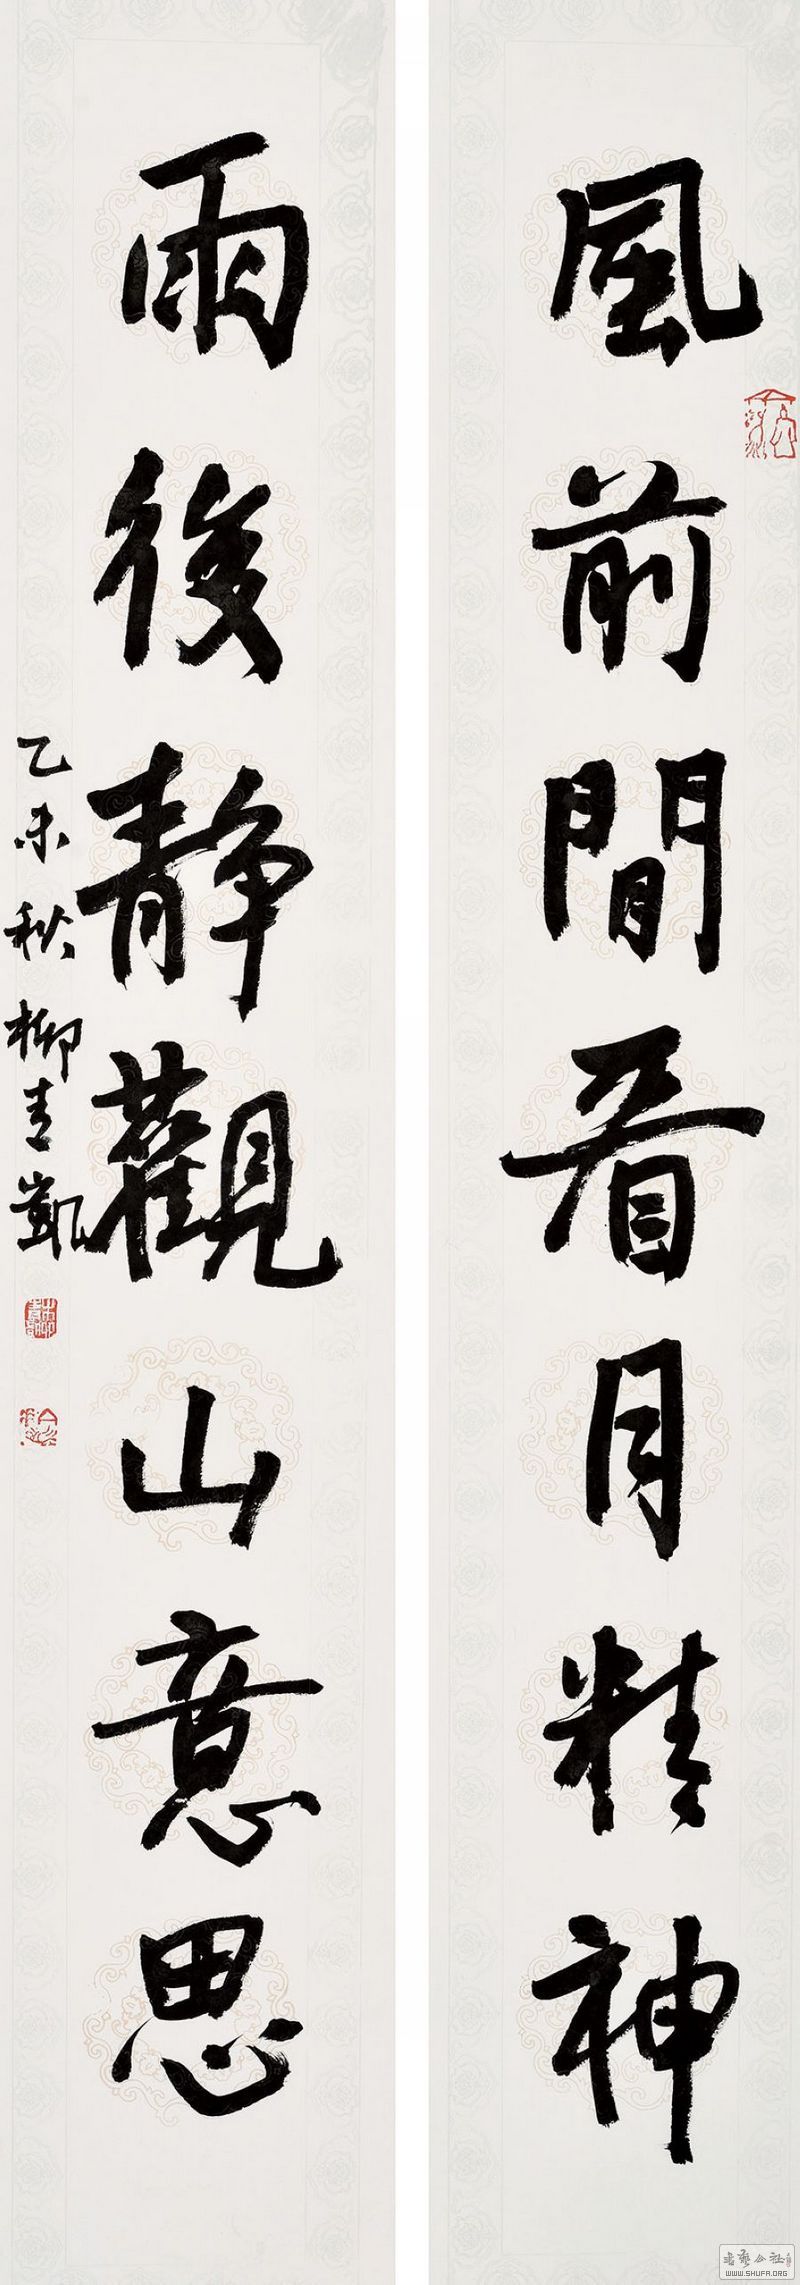 風前閒看月精神
雨後静觀山意思
乙未秋柳青凱
書藝公社
WWW.SHUFA.ORG